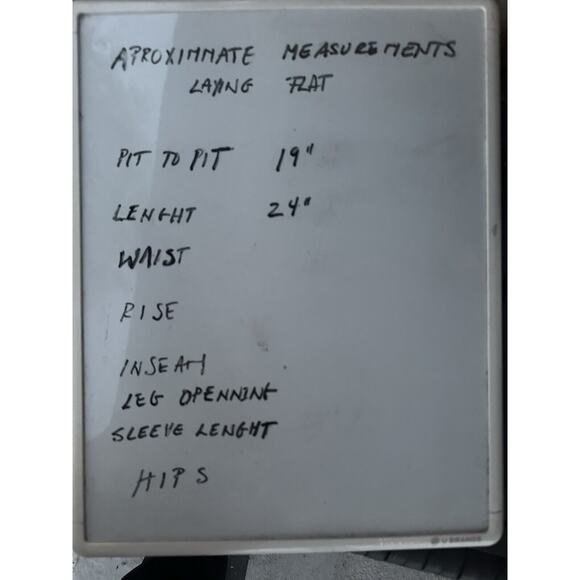 APROXIMMATE MEASUREMENTS
LAYING FLAT
PIT TO PIT 19"
LENGHT 24"
WAIST
RISE
INSEAM
LEG OPENNING
SLEEVE LENGHT
HIPS
U BRANDS